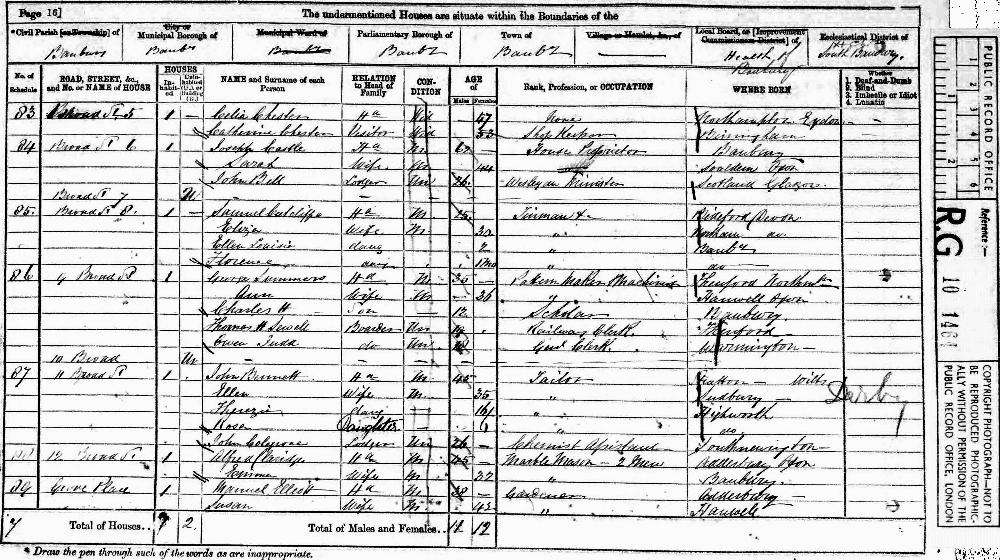 Page 16]
The undermentioned Houses are situate within the Boundaries of the
*Civil Parish [or Township] of
City or Municipal Borough of
Municipal Ward of
Parliamentary Borough of
Town of
Village or Hamlet, &c., of
Local Board, or [Improvement Commissioners District] of
Ecclesiastical District of
Banbury Banb^y Banb^y Banb^y Banb^y Health of Banbury South Banbury
No. of Schedule
ROAD, STREET, &c., and No. or NAME of HOUSE
HOUSES
Inhabited
Uninhabited (U.) or Building (B.)
NAME and Surname of each Person
RELATION to Head of Family
CONDITION
AGE of
Males Females
Rank, Profession, or OCCUPATION
WHERE BORN
Whether
1. Deaf-and-Dumb
2. Blind
3. Imbecile or Idiot
4. Lunatic
83 Broad St 5 1 — Celia Chester Hd Wid 47 None Northampton Eydon
Catherine Chester Visitor Wid 53 Shop Keeper Birmingham
84 Broad St 6 1 Joseph Castle Hd M Banbury
Sarah Wife M 44
John Bell Lodger Un 26 Wesleyan Minister Scotland Glasgow
Broad St 7 Un
85 Broad St 8 1 — Samuel Cutcliffe Hd M 25 Tinman Bideford Devon
Eliza Wife M 30 " Northam do
Ellen Louisa daug 2 Banb^y
Florence daug 1 mo " do
86 9 Broad St 1 George Summers Hd M 35 Pattern Maker Machinist Thenford
Ann Wife M 36 " Hanwell Oxon
Charles H Son 12 Scholar Banbury
Thomas H Sewell Boarder Un Railway Clerk Thenford
Owen Judd do Un Genl Clerk Warmington
10 Broad Un
87 11 Broad St 1 John Bennett Hd M 45 Tailor Wilts
Ellen Wife M 35 "
daug 16 " Highworth
Rosa Daughter 6 " do
John Colgrove Lodger Un 26 Chemist Assistant
88 12 Broad St 1 Alfred Claridge Hd M 45 Marble Mason — 2 Men Adderbury Oxon
Emma Wife M 37 " Banbury
89 Grove Place 1 Manuel Elliott Hd M 38 Gardener Adderbury
Susan Wife M 42 " Hanwell
Darby
7 Total of Houses.. 7 2 Total of Males and Females.. 11 12
* Draw the pen through such of the words as are inappropriate.
PUBLIC RECORD OFFICE
1 2 3 4 5 6
Reference:—
RG 10 1461
COPYRIGHT PHOTOGRAPH—NOT TO BE REPRODUCED PHOTOGRAPHICALLY WITHOUT PERMISSION OF THE PUBLIC RECORD OFFICE, LONDON